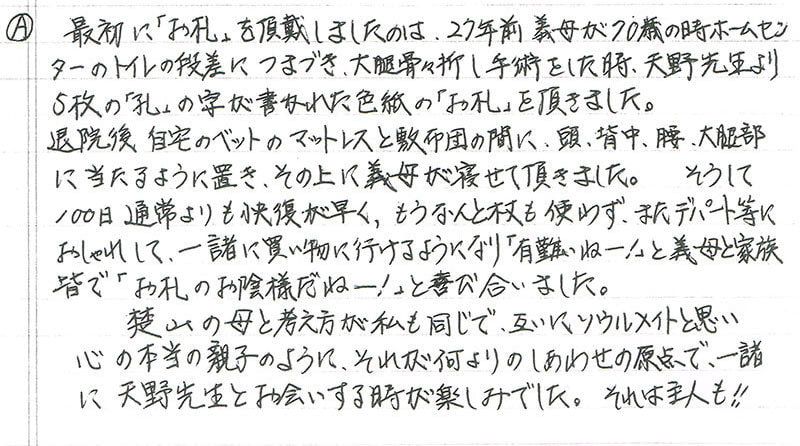 Ⓐ 最初に「お札」を頂戴しましたのは、27年前義母が70歳の時ホームセン
ターのトイレの段差につまづき、大腿骨々折し手術をした時、天野先生より
5枚の「孔」の字が書かれた色紙の「お札」を頂きました。
退院後 自宅のベットのマットレスと敷布団の間に、頭、背中、腰、大腿部
に当たるように置き、その上に義母が寝せて頂きました。 そうして
100日 通常よりも快復が早く、もうなんと杖も使わず、またデパート等に
おしゃれして、一諸に買い物に行けるようになり「有難いねー!」と義母と家族
皆で「お札のお陰様だねー!」と喜び合いました。
楚山の母と考え方が私も同じで、互いにソウルメイトと思い
心の本当の親子のように、それが何よりのしあわせの原点で、一諸
に 天野先生とお会いする時が楽しみでした。それは主人も!!